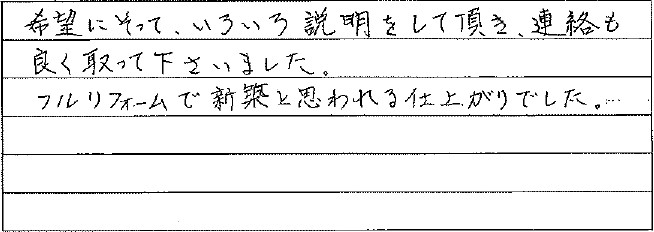 希望にそって、いろいろ説明をして頂き、連絡も
良く取って下さいました。
フルリフォームで新築と思われる仕上がりでした。